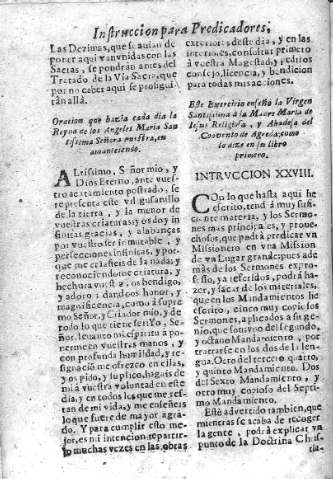 Instruccion para Predicadores,
Las Dezimas, que se auian de
poner aqui van vnidas con las
Sactas, se pondràn antes del
Tratado de la Via Sacra, que
por no caber aqui se prosigui-
ràn allà.
Oracion que hazia cada dia la
Reyna de los Angeles Maria San-
tissima Señora nuestra, en
amaneciendo.
ALtissimo, Señor mio, y
Dios Eterno, ante vues-
tro acatamiento postrado, se
representa este vil gusanillo
de la tierra, y la menor de
vuestras criaturas; y os doy in-
finitas gracias, y alabanças
por vuestro ser inmutable, y
perfecciones infinitas, y por-
que me criasteis de la nada; y
reconociendome criatura, y
hechura vuestra, os bendigo,
y adoro, y dandoos honor, y
magnificencia, como à supre-
mo Señor, y Criador mio, y de
todo lo que tiene ser. Yo, Se-
ñor, leuanto mi espiritu à po-
nerme en vuestras manos, y
con profunda humildad, y re-
signaciō me ofrezco en ellas,
y os pido, y suplico, hagais de
mi à vuestra voluntad en este
dia, y en todos los que me res-
tan de mi vida, y me enseñeis
lo que fuere de mayor agra-
do. Y para cumplir esto me-
jor, es mi intencion repartir-
lo muchas vezes en las obras
exteriores deste dia, y en las
interiores, consultar primero
à vuestra Magestad, y pediros
consejo, licencia, y bendicion
para todas mis acciones.
Este Exercicio enseñò la Virgen
Santissima à la Madre Maria de
Iesus Religiosa, y Abadesa del
Convento de Agreda, como
lo dize en su libro
primero.
INTRVCCION XXVIII.
COn lo que hasta aqui he
escrito, tend à muy sufi-
ciente materia, y los Sermo-
nes mas principales, y proue-
chosos, que podrà predicar vn
Missionero en vna Mission
de vn Lugar grande; pues ade
màs de los Sermones expres-
so, ya referidos, podrà ha-
zer, y sacar de los materiales,
que en los Mandamientos he
escrito, cinco muy copiosos
Sermones, aplicados à su ge-
nio, que son vno del segundo,
y octauo Mandamiento, por
tratarse en los dos de la len-
gua. Otro del tercero, quarto,
y quinto Mandamiento. Dos
del Sexto Mandamiento, y
otro muy copioso del Septi-
mo Mandamiento.
Estè advertido tambien, que
mientras se acaba de recoger
la gente, podrà explicar vn
punto de la Doctrina Chris-
tia-